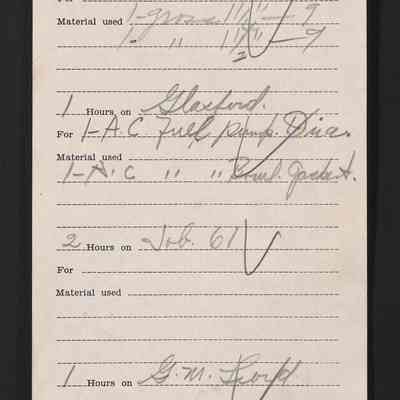 For
Material used 1-gross 1½" — 9
1- " 1½" — 9
2
1 Hours on Glasford.
For 1-A.C Fuel pump. Dia.
Material used
1-A.C " " Bowl. Gasket.
2 Hours on Job. 61
For
Material used
1 Hours on G.M. Floyd